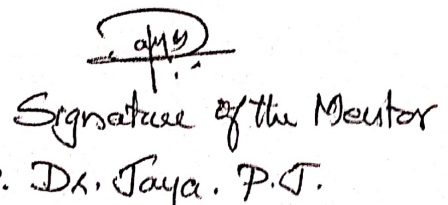 Signature of the Mentor
. Dr. Jaya. P.J.